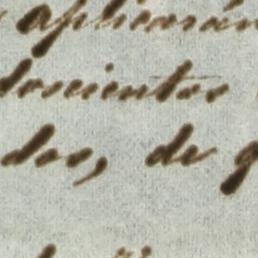 aplicarán
doscientos
dos, de